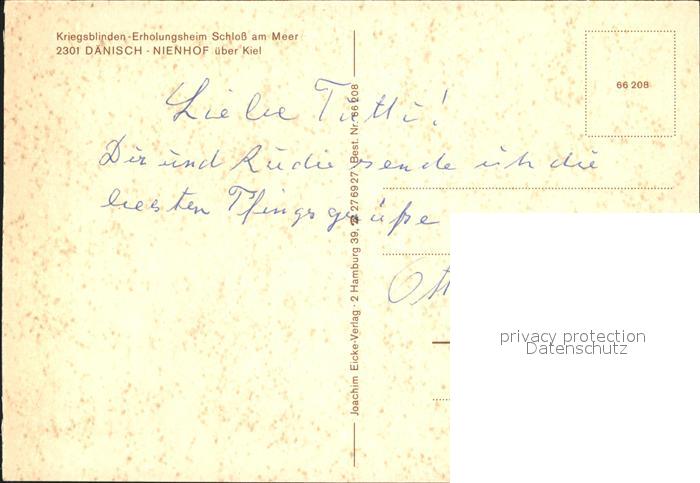 Kriegsblinden-Erholungsheim Schloß am Meer
2301 DÄNISCH - NIENHOF über Kiel
66 208
Liebe Tutti!
Dir und Rudi sende ich die
besten Pfingsgrüße
Ott
Joachim Eicke-Verlag · 2 Hamburg 39, ☎ 276927 · Best. Nr. 66 208
privacy protection
Datenschutz